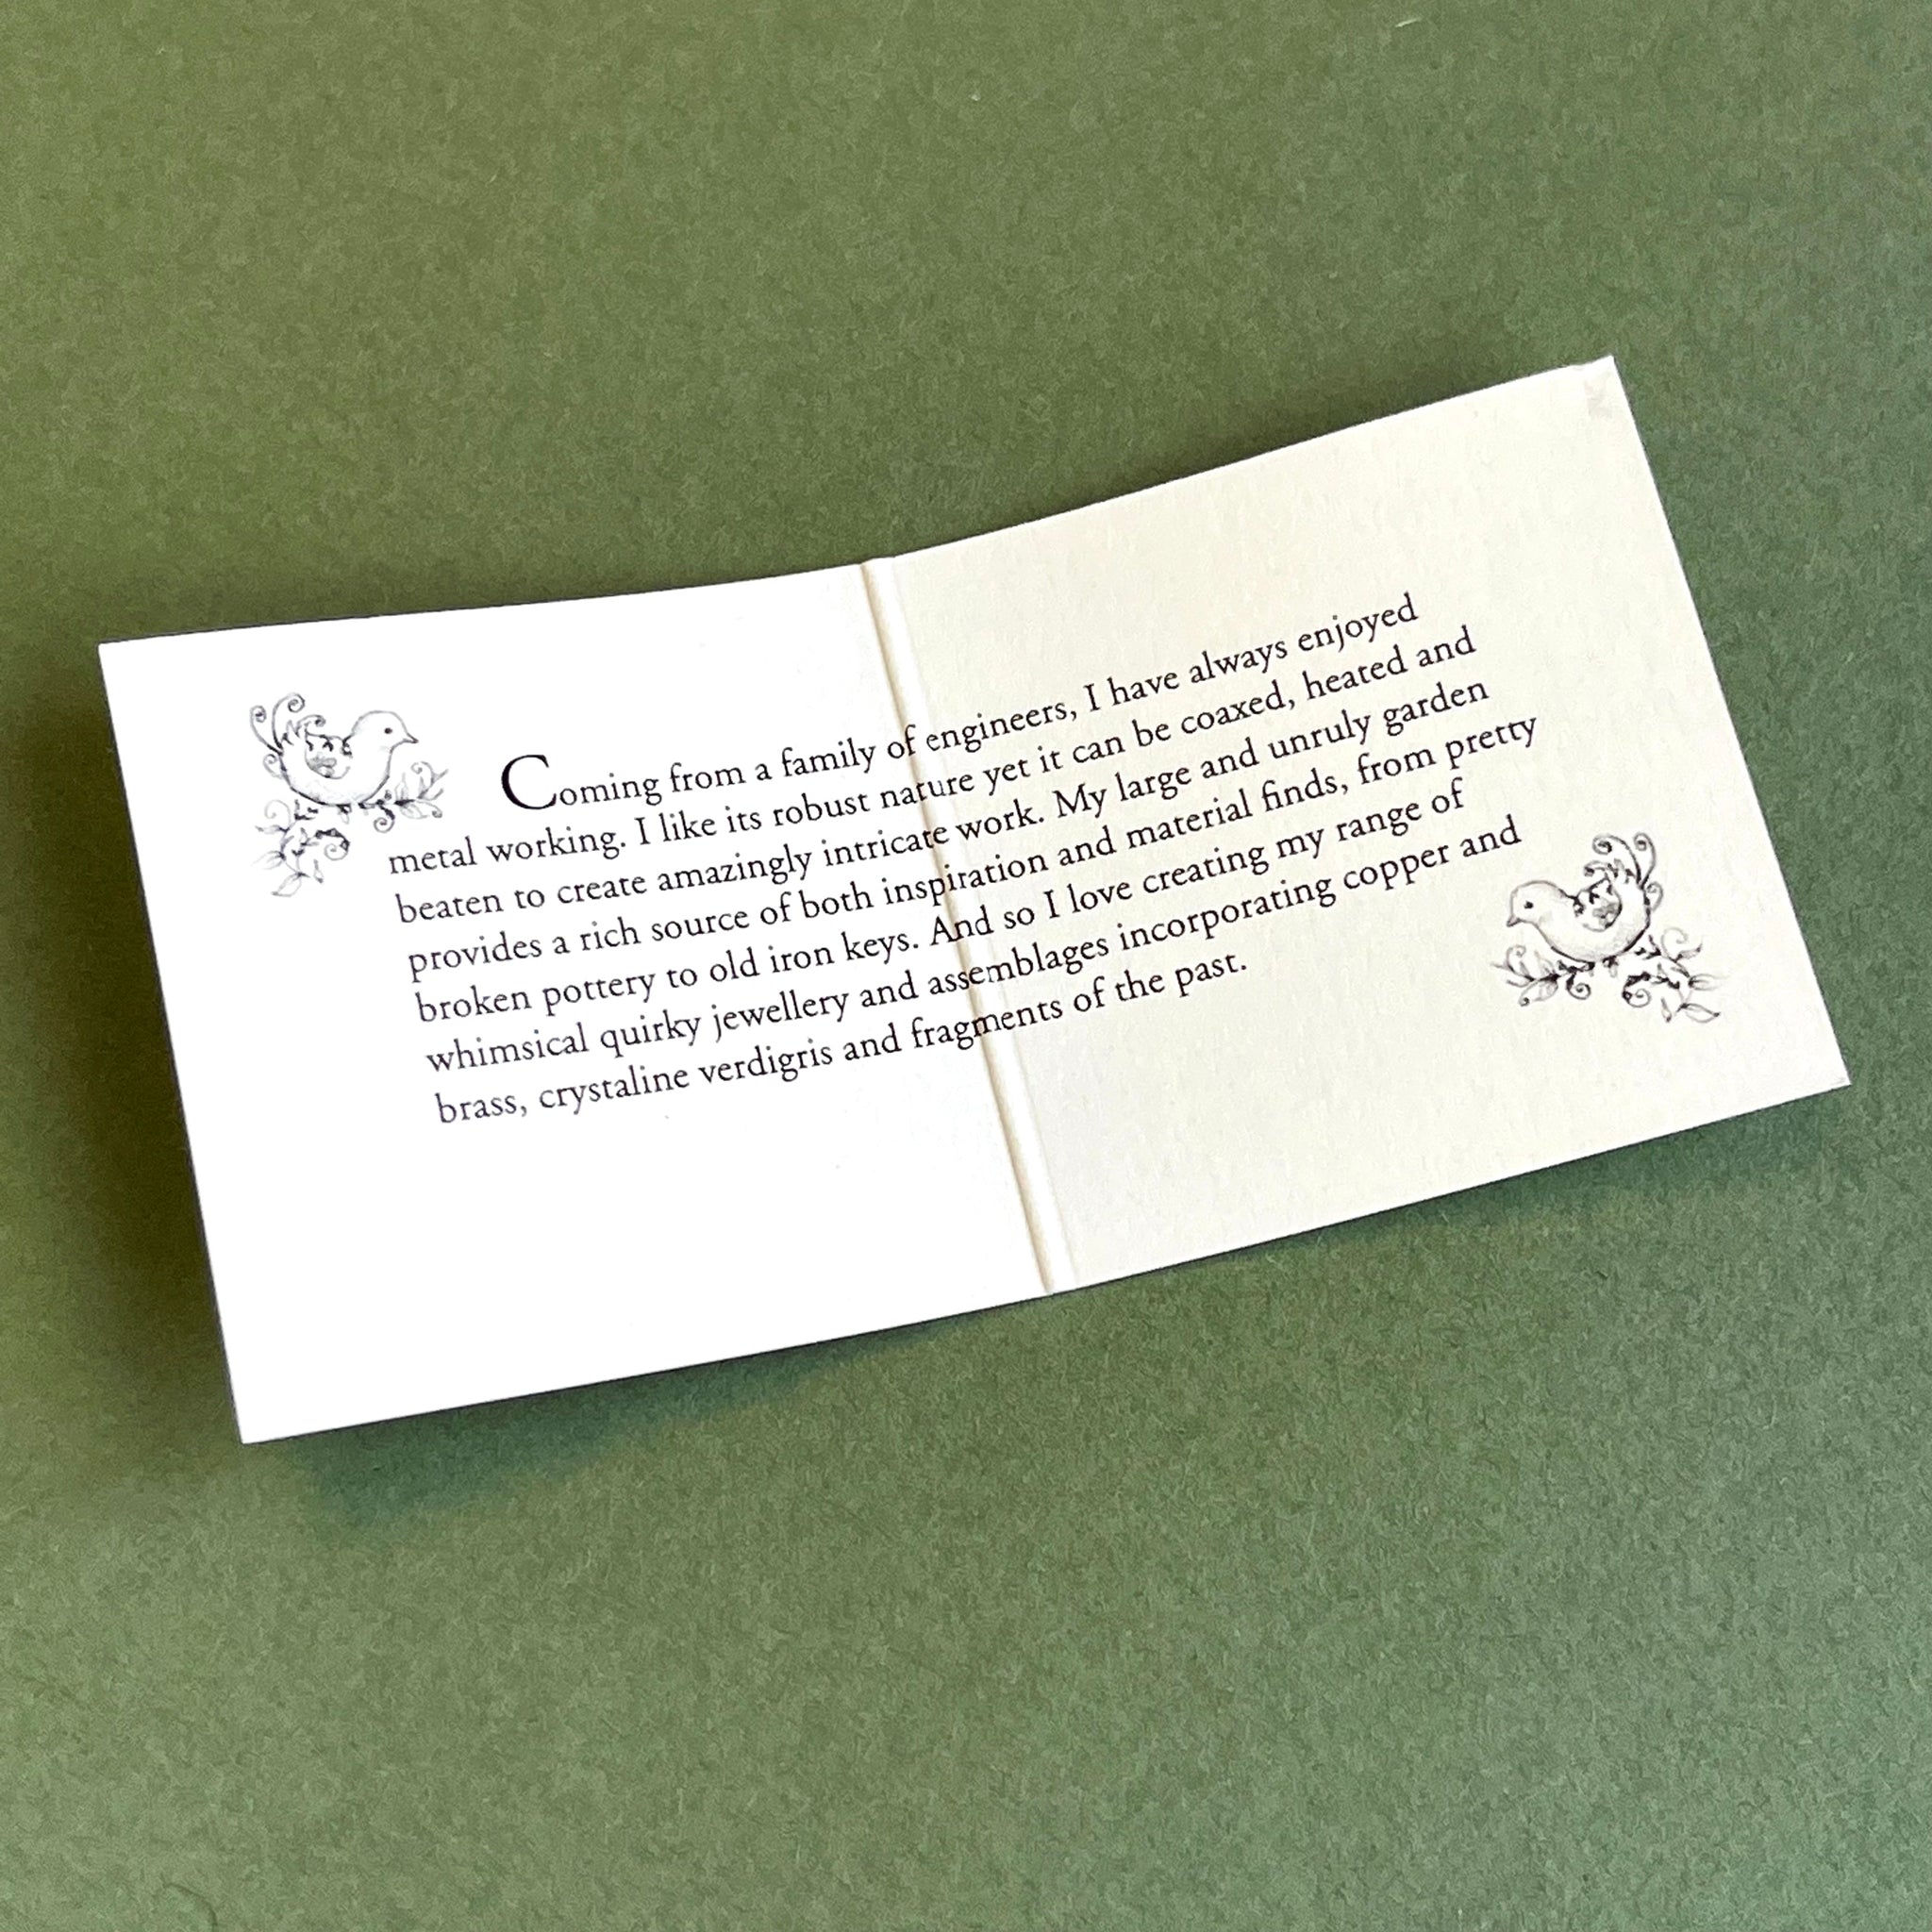 Coming from a family of engineers, I have always enjoyed
metal working. I like its robust nature yet it can be coaxed, heated and
beaten to create amazingly intricate work. My large and unruly garden
provides a rich source of both inspiration and material finds, from pretty
broken pottery to old iron keys. And so I love creating my range of
whimsical quirky jewellery and assemblages incorporating copper and
brass, crystaline verdigris and fragments of the past.